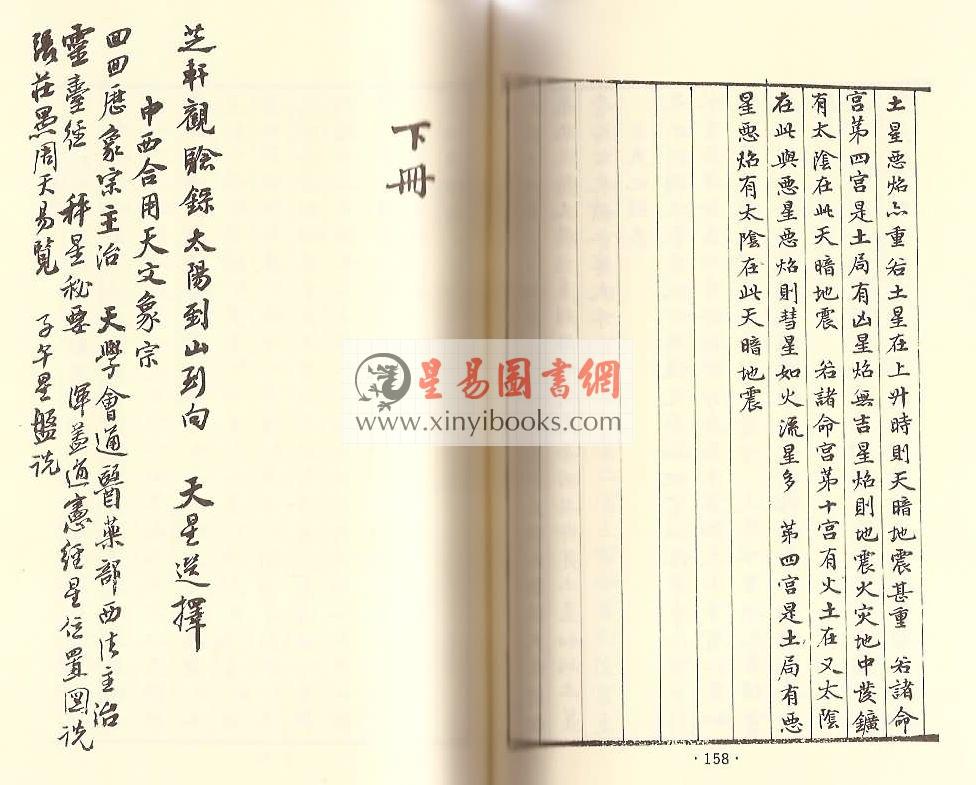 土星惡焰亦重若土星在上升時則天暗地震甚重 若諸命
宮第四宮是土局有凶星焰無吉星焰則地震火灾地中發鑛
有太陰在此天暗地震 若諸命宮第十宮有火土在又太陰
在此與惡星惡焰則彗星如火流星多 第四宮是土局有惡
星惡焰有太陰在此天暗地震
·158·
下冊
芝軒觀驗錄太陽到山到向 天星选擇
中西合用天文象宗
回回历象宗主治 天學會通醫藥部西法主治
靈臺經 秤星秘要 渾蓋通憲經星位置図说
張荘愚周天易覽 子午星盤说
星易圖書網
www.xinyibooks.com